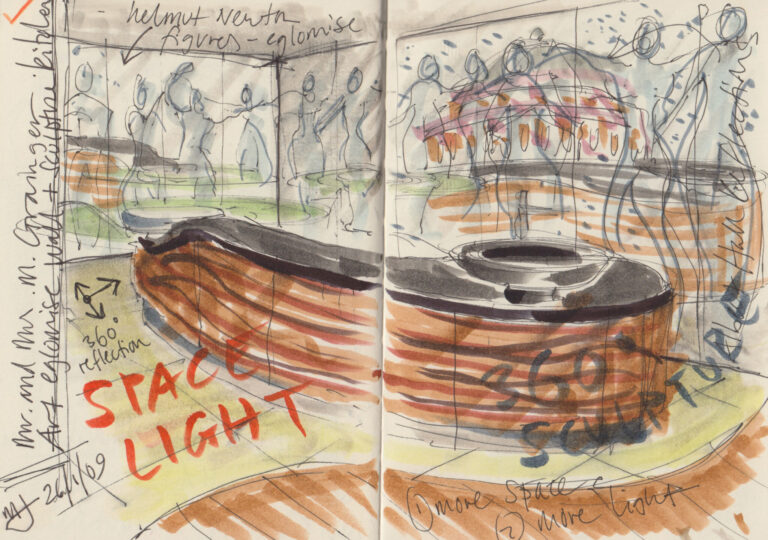 helmut Newton
figures - eglomise
Mr. and Mrs. M. Grainger
Art eglomise wall + sculpture kitchen
360°
reflection
SPACE
LIGHT
26/1/09
360°
SCULPTURE
Hall reflecting
① more space
② more light